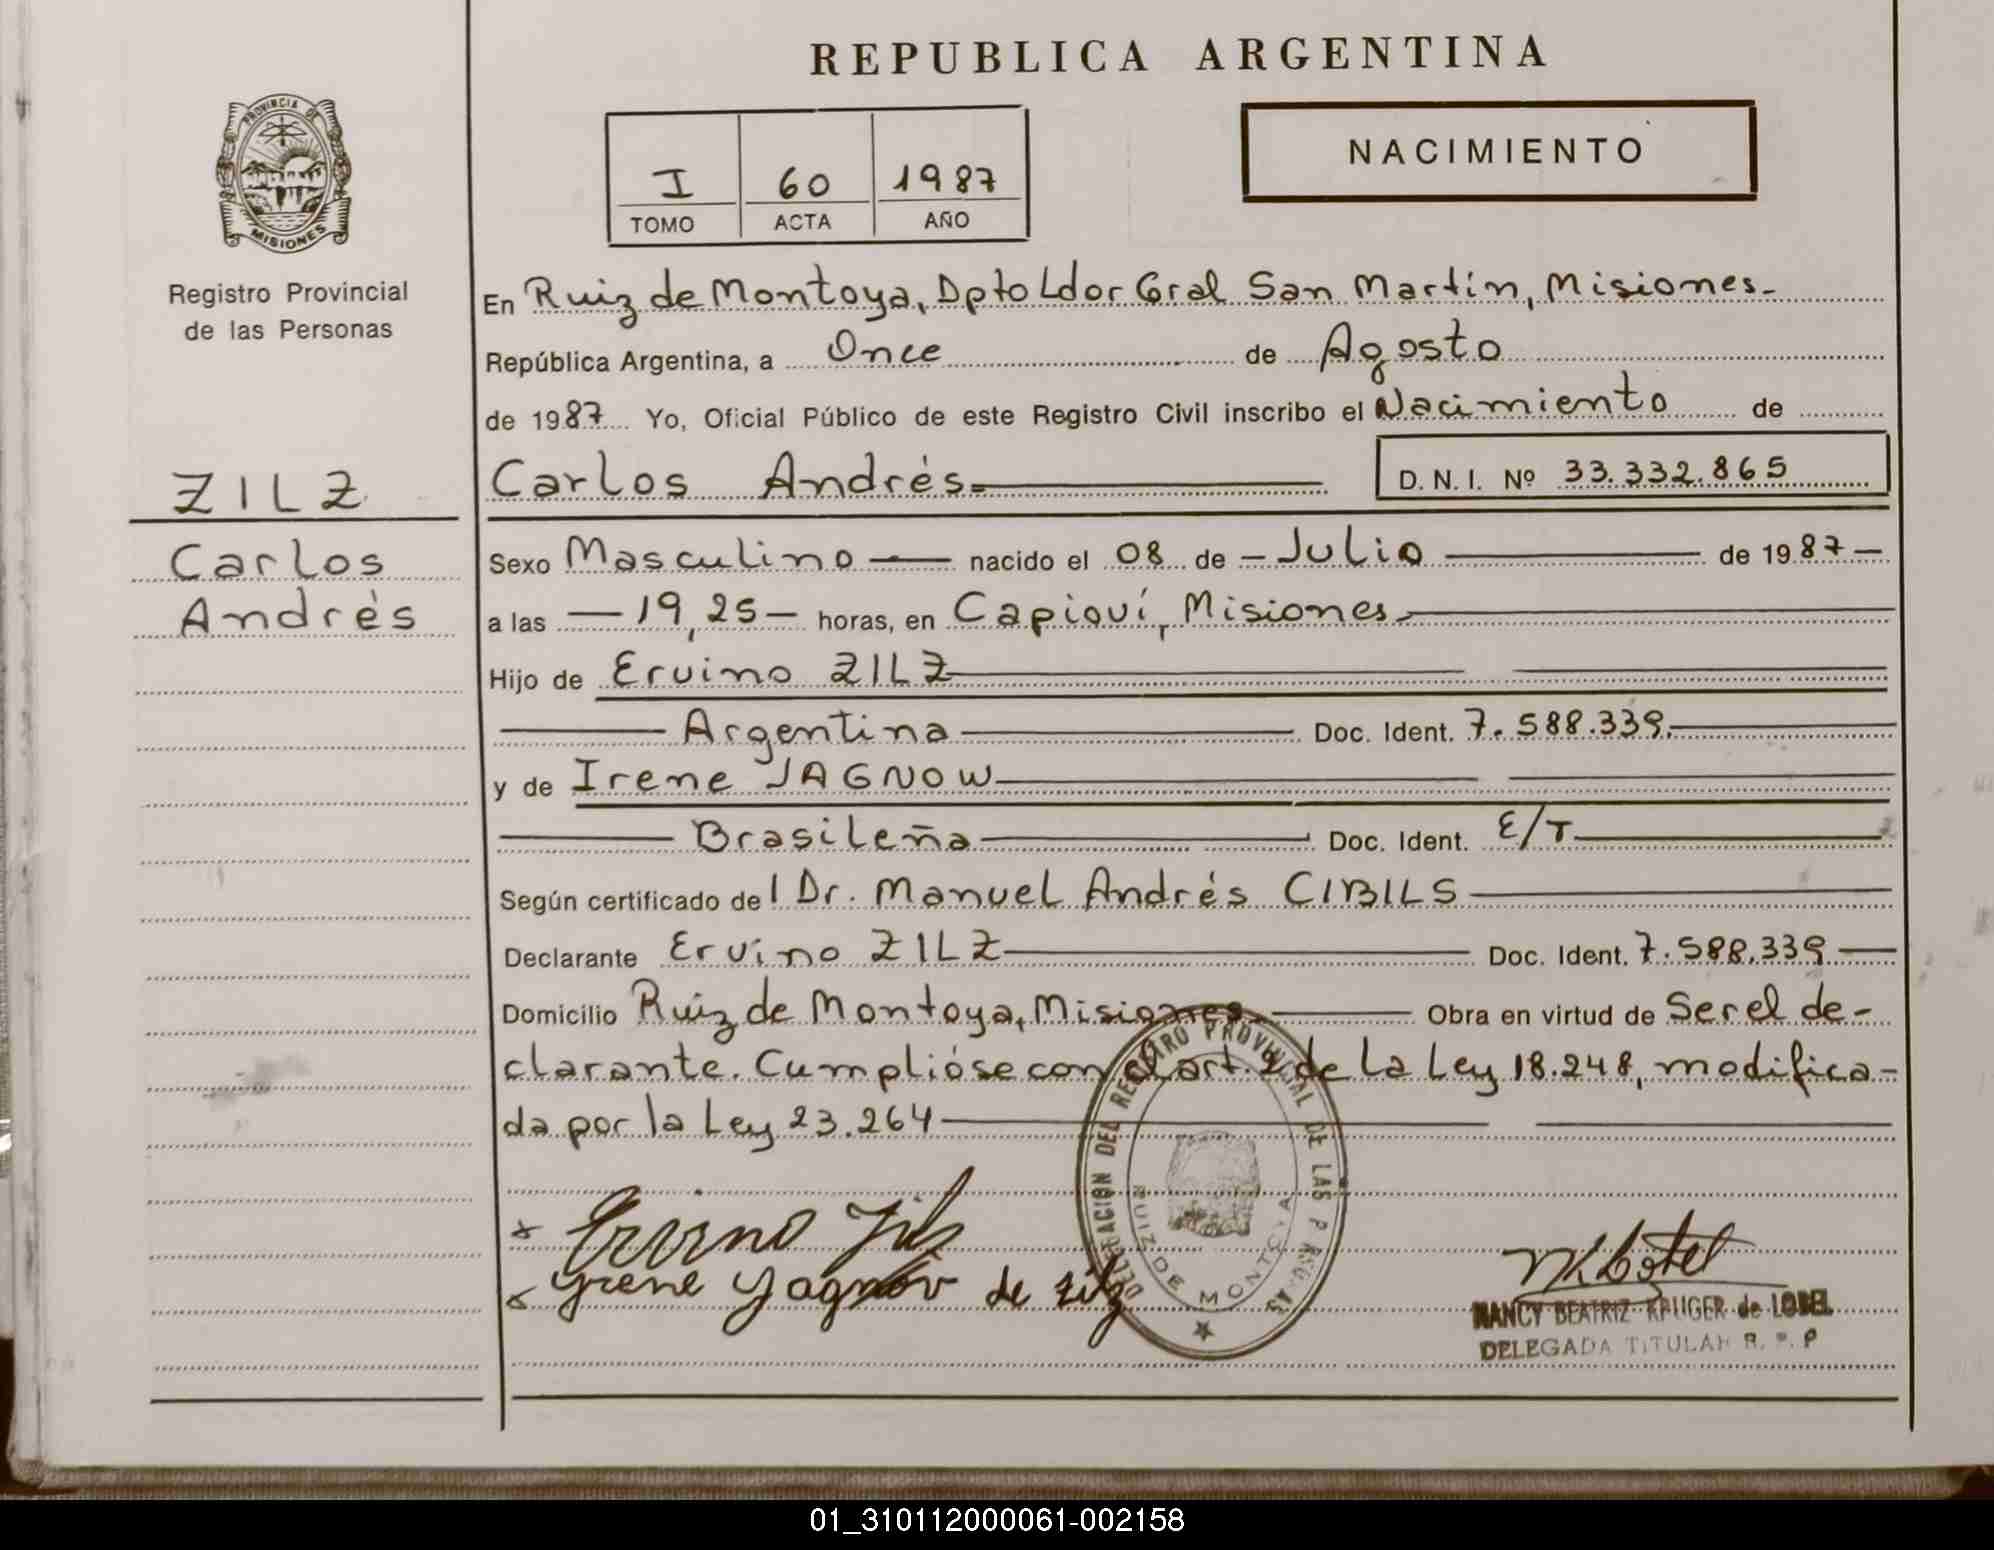 REPUBLICA ARGENTINA
NACIMIENTO
I 60 1987
TOMO ACTA AÑO
PROVINCIA DE
MISIONES
Registro Provincial
de las Personas
ZILZ
Carlos
Andrés
En Ruiz de Montoya, Dpto Ldor Gral San Martín, Misiones-
República Argentina, a Once de Agosto
de 1987 Yo, Oficial Público de este Registro Civil inscribo el Nacimiento de
Carlos Andrés
D. N. I. Nº 33.332.865
Sexo Masculino nacido el 08 de Julio de 1987
a las 19,25 horas, en Capioví, Misiones
Hijo de Ervino ZILZ
Argentina Doc. Ident. 7.588.339
y de Irene JAGNOW
Brasileña Doc. Ident. E/T
Según certificado del Dr. Manuel Andrés CIBILS
Declarante Ervino ZILZ Doc. Ident. 7.588.339
Domicilio Ruiz de Montoya, Misiones Obra en virtud de Ser el de-
clarante. Cumplióse con el art. 2 de la Ley 18.248, modifica-
da por la Ley 23.264
DELEGACION DEL REGISTRO PROVINCIAL DE LAS
RUIZ DE MONTOYA
Ervino Zilz
Yrene Yagnov de Zilz
NANCY BEATRIZ KRUGER de LOBEL
DELEGADA TITULAR R. P. P
01_310112000061-002158